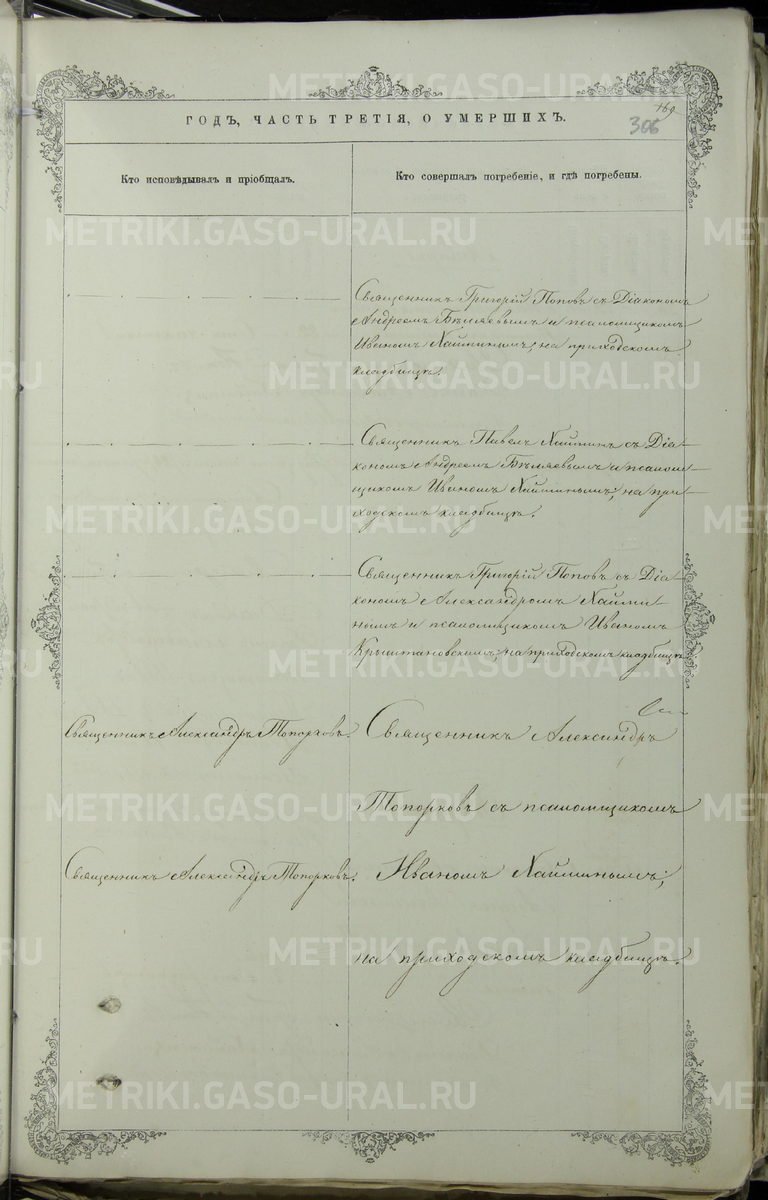 169
306
ГОДЪ, ЧАСТЬ ТРЕТІЯ, О УМЕРШИХЪ.
Кто исповѣдывалъ и пріобщалъ.
Кто совершалъ погребеніе, и гдѣ погребены.
Священникъ Григорій Поповъ съ Діакономъ
Андреемъ Бѣляевымъ и псаломщикомъ
Иваномъ Хайминымъ; на приходскомъ
кладбищѣ.
Священникъ Павелъ Хайминъ съ Діа-
кономъ Андреемъ Бѣляевымъ и псалом-
щикомъ Иваномъ Хайминымъ; на при-
ходскомъ кладбищѣ.
Священникъ Григорій Поповъ съ Діа-
кономъ Александромъ Хайми-
нымъ и псаломщикомъ Иваномъ
Крыштановскимъ; на приходскомъ кладбищѣ.
Священникъ Александръ Топорковъ.
Священникъ Александръ
Топорковъ съ псаломщикомъ
Священникъ Александръ Топорковъ.
Иваномъ Хайминымъ;
на приходскомъ кладбищѣ.
METRIKI.GASO-URAL.RU